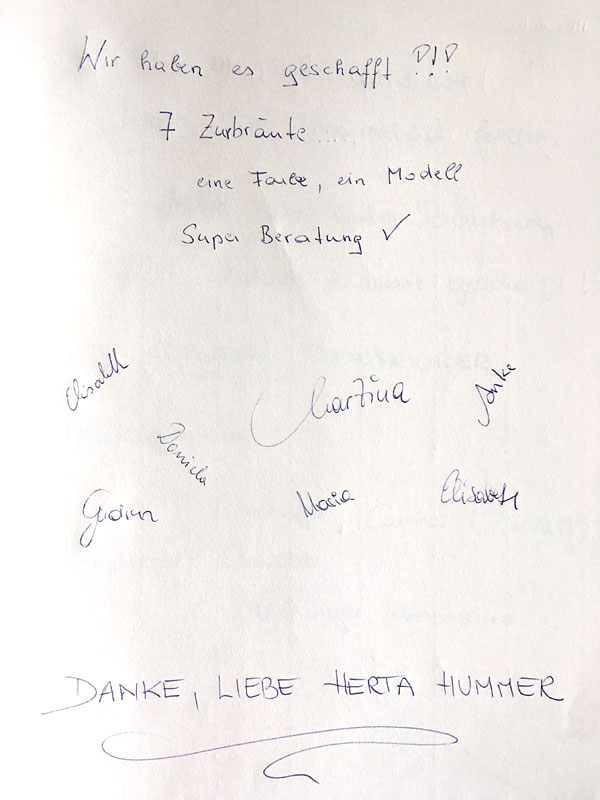 Wir haben es geschafft !!!
7 Zurbräute .....
eine Farbe, ein Modell
Super Beratung ✓
Elisabeth
Martina
Anke
Daniela
Gudrun
Maria
Elisabeth
DANKE, LIEBE HERTA HUMMER